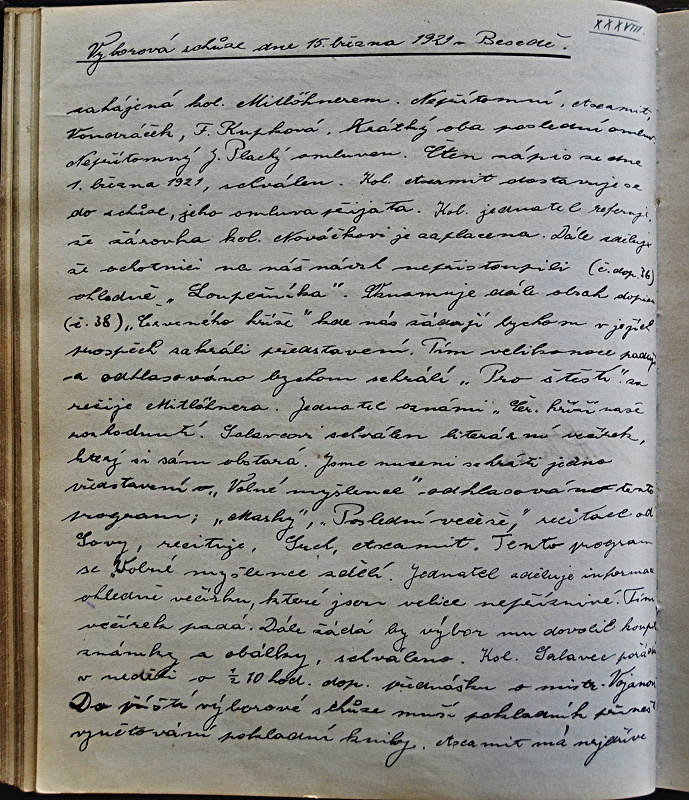 XXXVIII.
Výborová schůze dne 15. března 1921 v Besedě.
zahájená kol. Mitlöhnerem. Nepřítomni, Axamit,
Vondráček, F. Kupková, Krátký oba poslední omluv.
Nepřítomný J. Plachý omluven. Čten zápis ze dne
1. března 1921, schválen. Kol. Axamit dostavuje se
do schůze, jeho omluva přijata. Kol. jednatel referuje,
že žárovka kol. Nováčkovi je zaplacena. Dále sděluje
že ochotníci na náš návrh nepřistoupili (č. dop. 36)
ohledně „Loupežníka". Oznamuje dále obsah dopisu
(č. 38) „Červeného kříže" kde nás žádají bychom v jejich
prospěch zahráli představení. Tím velikonoce padají
a odhlasováno bychom sehráli „Pro štěstí" za
režije Mitlöhnera. Jednatel oznámí „Čer. kříži naše
rozhodnutí. Salavcovi schválen literární večírek,
který si sám obstará. Jsme nuceni sehráti jedno
představení „Volné myšlence" odhlasováno tento
program; „Masky", „Poslední večeře," recitace od
Sovy, recituje, Axamit. Tento program
se „Volné myšlence sdělí. Jednatel sděluje informace
ohledně večírku, které jsou velice nepříznivé. Tím
večírek padá. Dále žádá by výbor mu dovolil koupit
známky a obálky, schváleno. Kol. Salavec pořádá
v neděli o ½ 10 hod. dop. přednášku o mistr. Vojanovi
Do příští výborové schůze musí pokladník přinést
vyúčtování pokladní knihy. Axamit má nejdříve